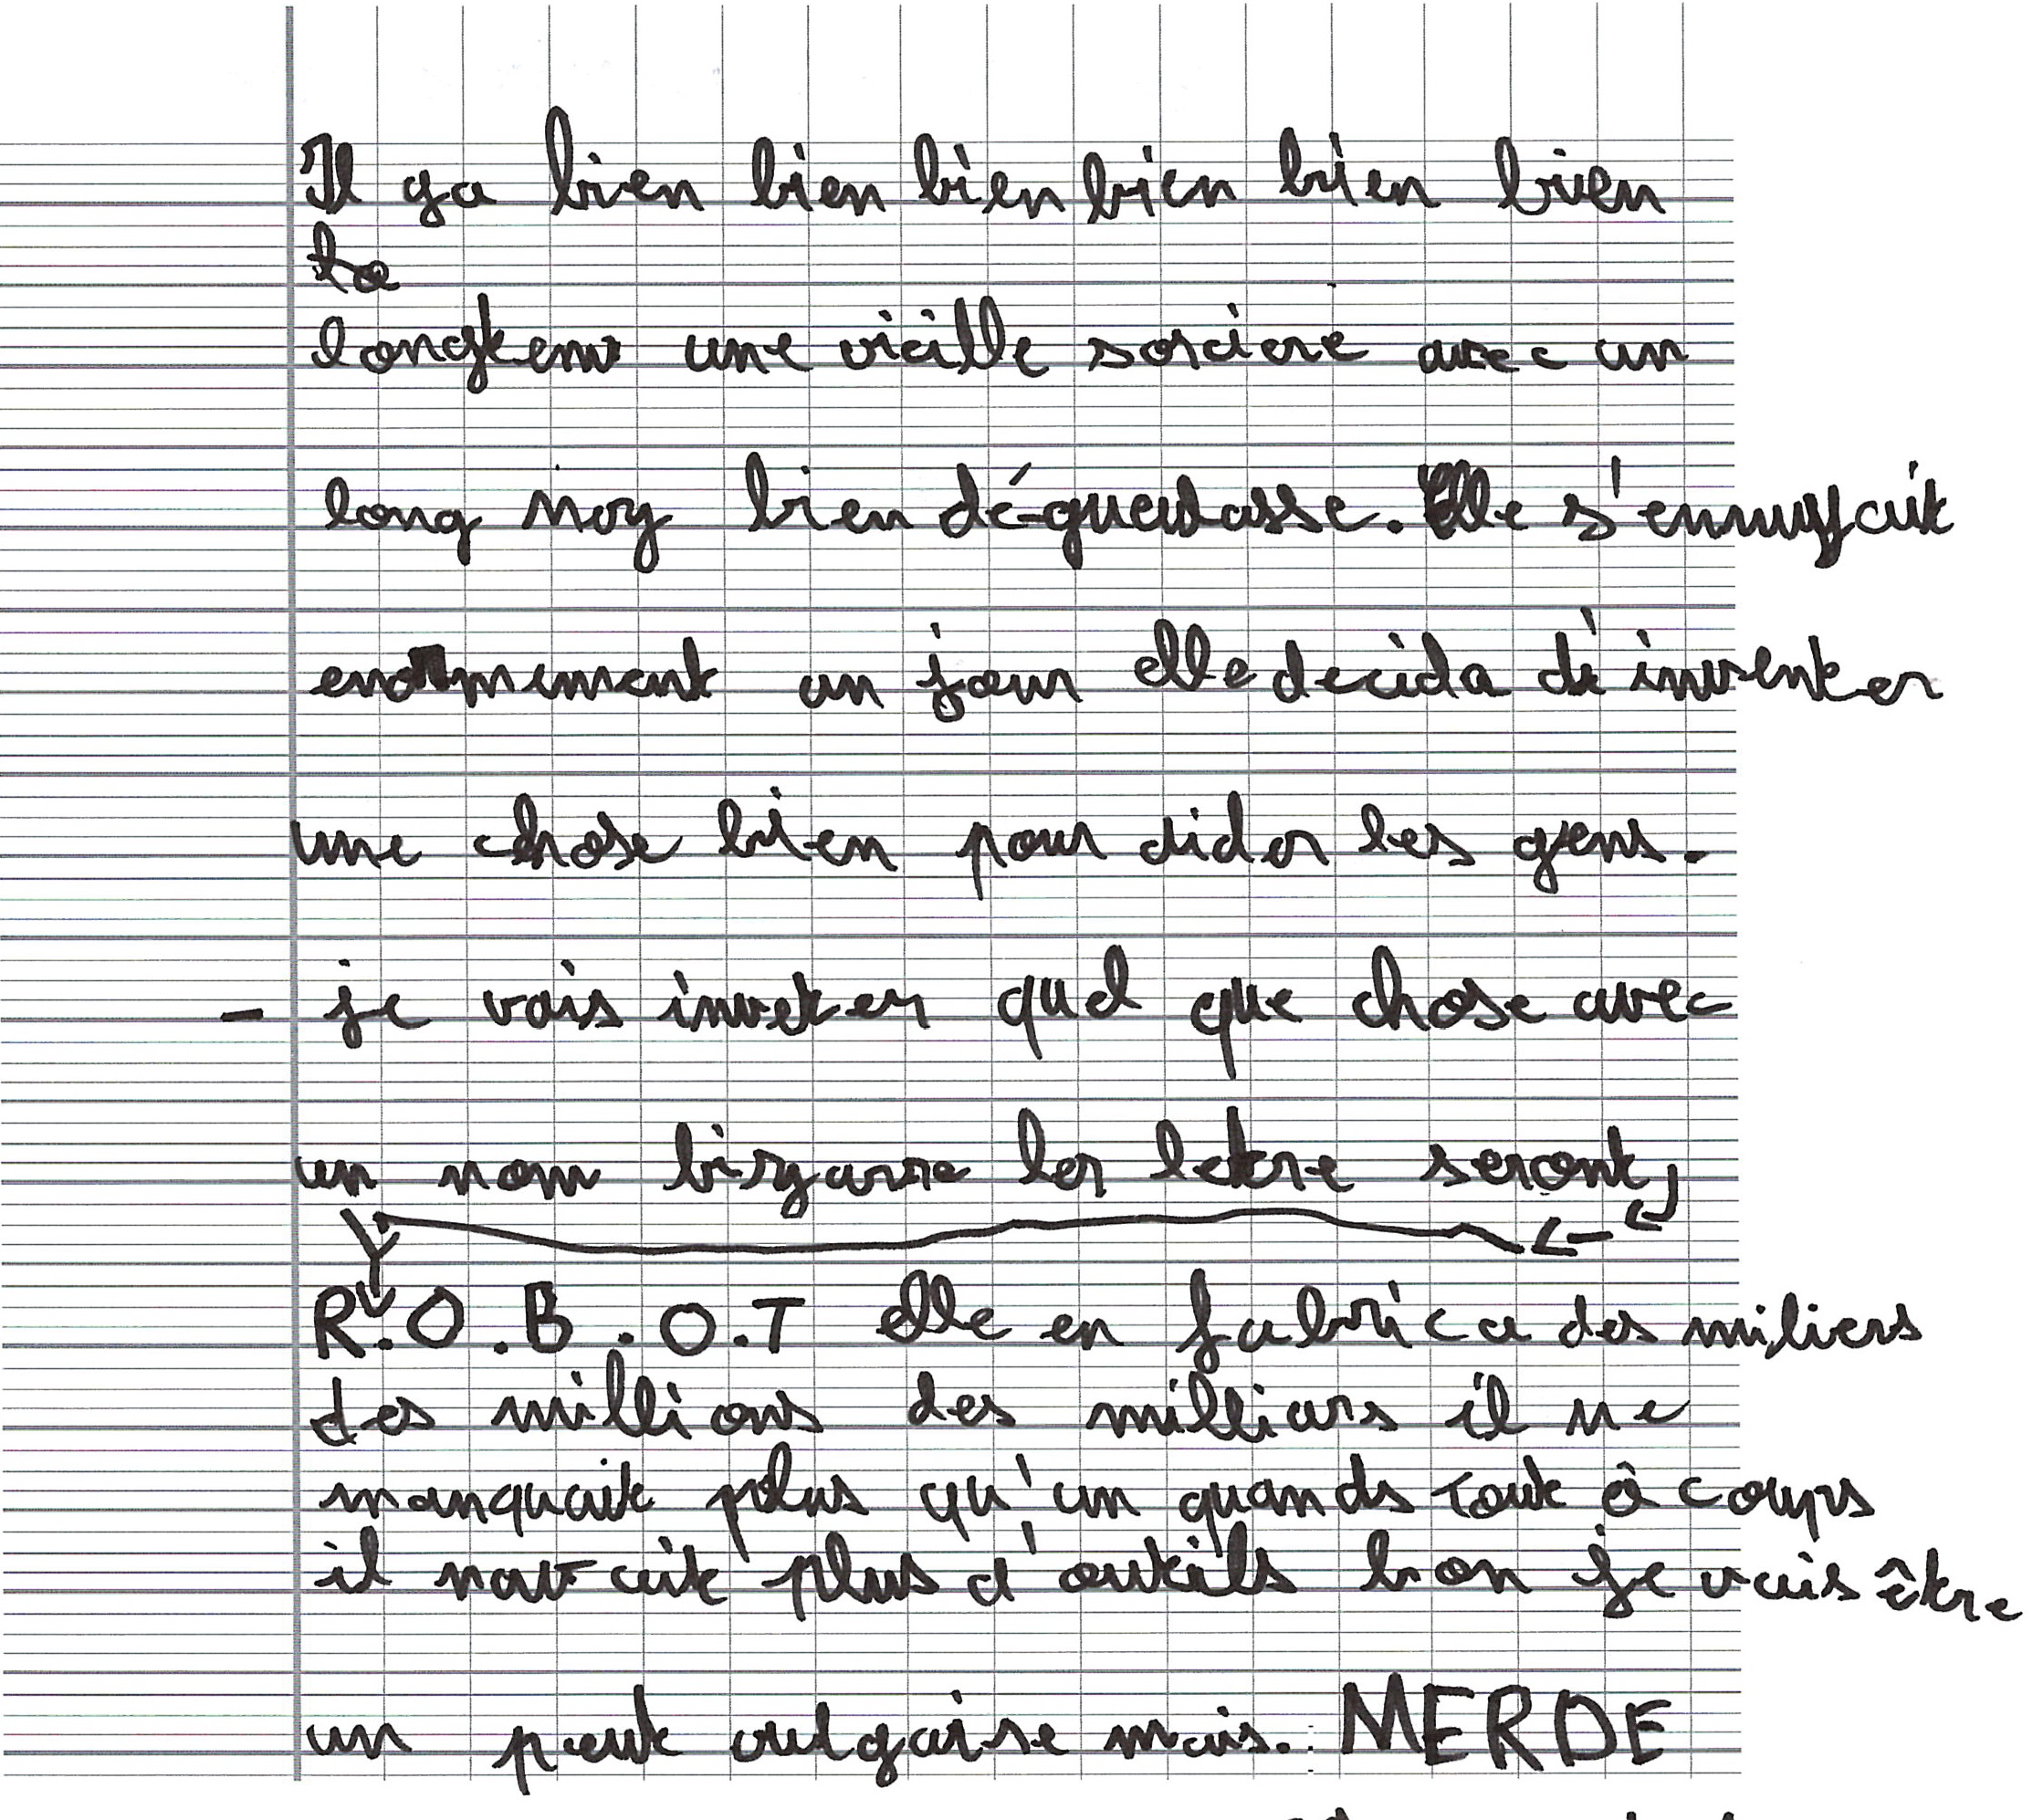 Il ya bien bien bien bien bien bien
longtems une vieille sorciere avec un
long noy bien dé-gueulasse. Elle s'ennuyait
enormément un jour elle decida d'inventer
une chose bien pour aider les gens.
- je vais inveter quel que chose avec
un nom bisgarre les lettre seront,
R.O.B.O.T elle en fabrica des miliers
des millions des milliars il ne
manquait plus qu'un quands tout à coups
il navait plus d'outils bon je vais être
un peut vulgaire mais.: MERDE